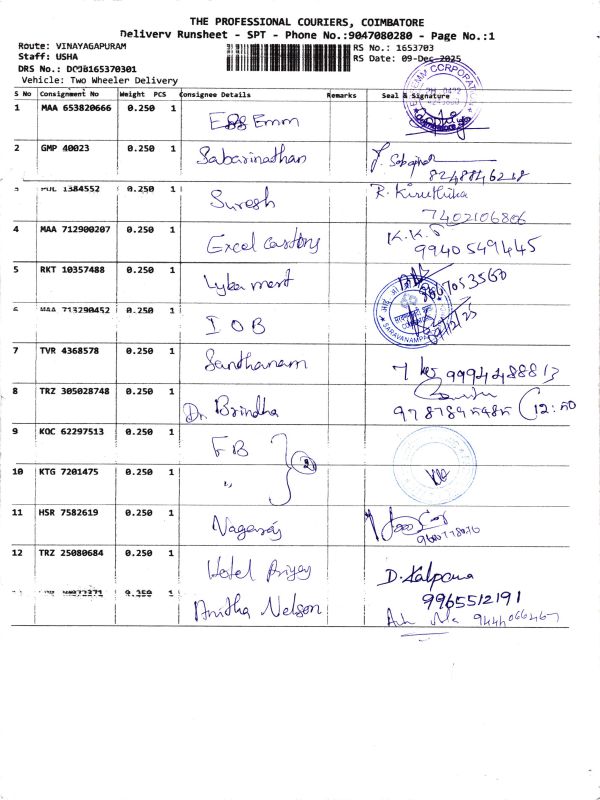 THE PROFESSIONAL COURIERS, COIMBATORE
Delivery Runsheet - SPT - Phone No.:9047080280 - Page No.:1
Route: VINAYAGAPURAM RS No.: 1653703
Staff: USHA RS Date: 09-Dec-2025
DRS No.: DCJB165370301
Vehicle: Two Wheeler Delivery
S No Consignment No Weight PCS Consignee Details Remarks Seal & Signature
1 MAA 653820666 0.250 1 Emm
2 GMP 40023 0.250 1 Sabarinathan
8248846218
3 1384552 0.250 1 Suresh R. Kiruthika
7402106806
4 MAA 712900207 0.250 1 Excel castings K.K.S
9940549445
5 RKT 10357488 0.250 1 Lyba mart
6 MAA 713290452 0.250 1 IOB
7 TVR 4368578 0.250 1 Santhanam 9994488813
8 TRZ 305028748 0.250 1 Dr. Brindha
9 KOC 62297513 0.250 1 FB
10 KTG 7201475 0.250 1 "
11 HSR 7582619 0.250 1 Nagaraj
12 TRZ 25080684 0.250 1 Hotel D. Kalpana
9965512191
0.250 1 Anitha Nelson